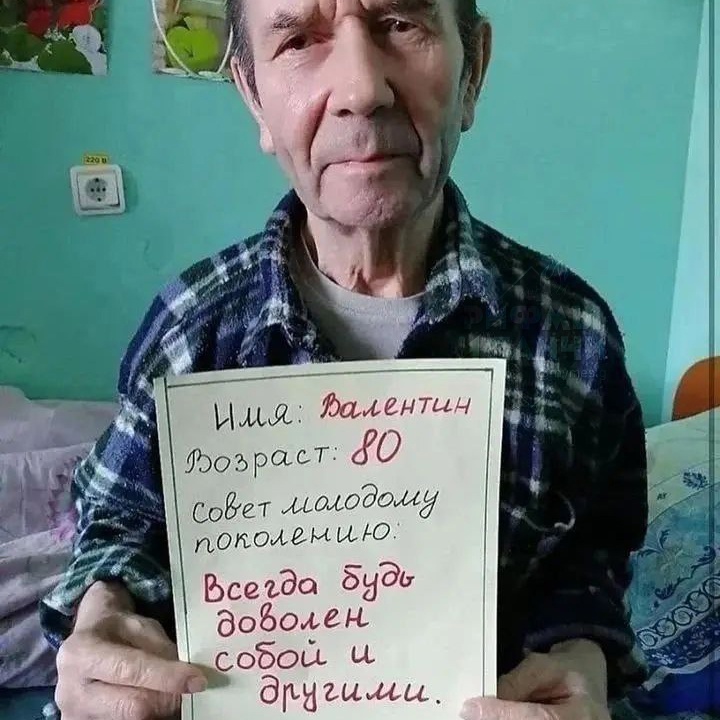 220 В
Имя: Валентин
Возраст: 80
Совет молодому
поколению:
Всегда будь
доволен
собой и
другими.